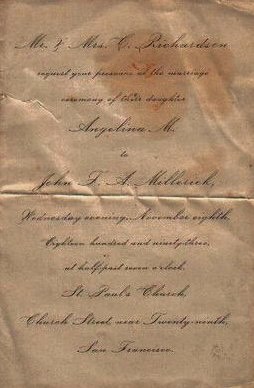 Mr. & Mrs. C. Richardson
request your presence at the marriage
ceremony of their daughter
Angelina M.
to
John F. A. Millerick,
Wednesday evening, November eighth,
Eighteen hundred and ninety-three,
at half past seven o'clock.
St. Paul's Church,
Church Street near Twenty-ninth,
San Francisco.